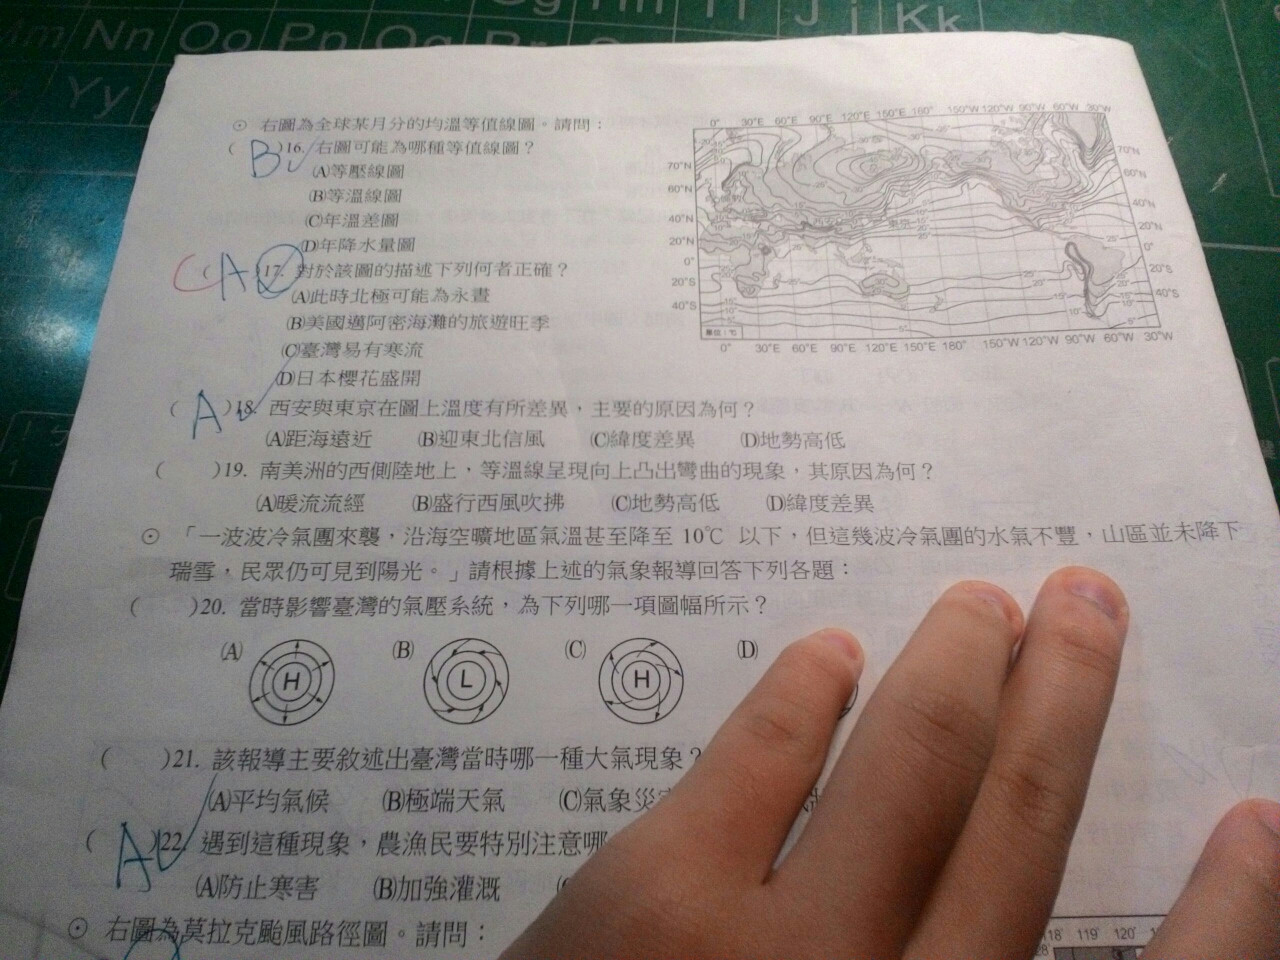 Nn Oo Pp Qq
Jj Kk
Yy
⊙ 右圖為全球某月分的均溫等值線圖。請問：
( B )16. 右圖可能為哪種等值線圖？
(A)等壓線圖
(B)等溫線圖
(C)年溫差圖
(D)年降水量圖
C ( A )17. 對於該圖的描述下列何者正確？
(A)此時北極可能為永晝
(B)美國邁阿密海灘的旅遊旺季
(C)臺灣易有寒流
(D)日本櫻花盛開
0° 30°E 60°E 90°E 120°E 150°E 160° 150°W 120°W 90°W 60°W 30°W
70°N 70°N
60°N 60°N
40°N 40°N
20°N 20°N
0° 0°
20°S 20°S
40°S 40°S
西安 東京
單位：℃
0° 30°E 60°E 90°E 120°E 150°E 180° 150°W 120°W 90°W 60°W 30°W
( A )18. 西安與東京在圖上溫度有所差異，主要的原因為何？
(A)距海遠近 (B)迎東北信風 (C)緯度差異 (D)地勢高低
( )19. 南美洲的西側陸地上，等溫線呈現向上凸出彎曲的現象，其原因為何？
(A)暖流流經 (B)盛行西風吹拂 (C)地勢高低 (D)緯度差異
⊙ 「一波波冷氣團來襲，沿海空曠地區氣溫甚至降至 10℃ 以下，但這幾波冷氣團的水氣不豐，山區並未降下
瑞雪，民眾仍可見到陽光。」請根據上述的氣象報導回答下列各題：
( )20. 當時影響臺灣的氣壓系統，為下列哪一項圖幅所示？
(A) H (B) L (C) H (D)
( )21. 該報導主要敘述出臺灣當時哪一種大氣現象？
(A)平均氣候 (B)極端天氣 (C)氣象災
( A )22. 遇到這種現象，農漁民要特別注意哪
(A)防止寒害 (B)加強灌溉
⊙ 右圖為莫拉克颱風路徑圖。請問：
118° 119° 120°